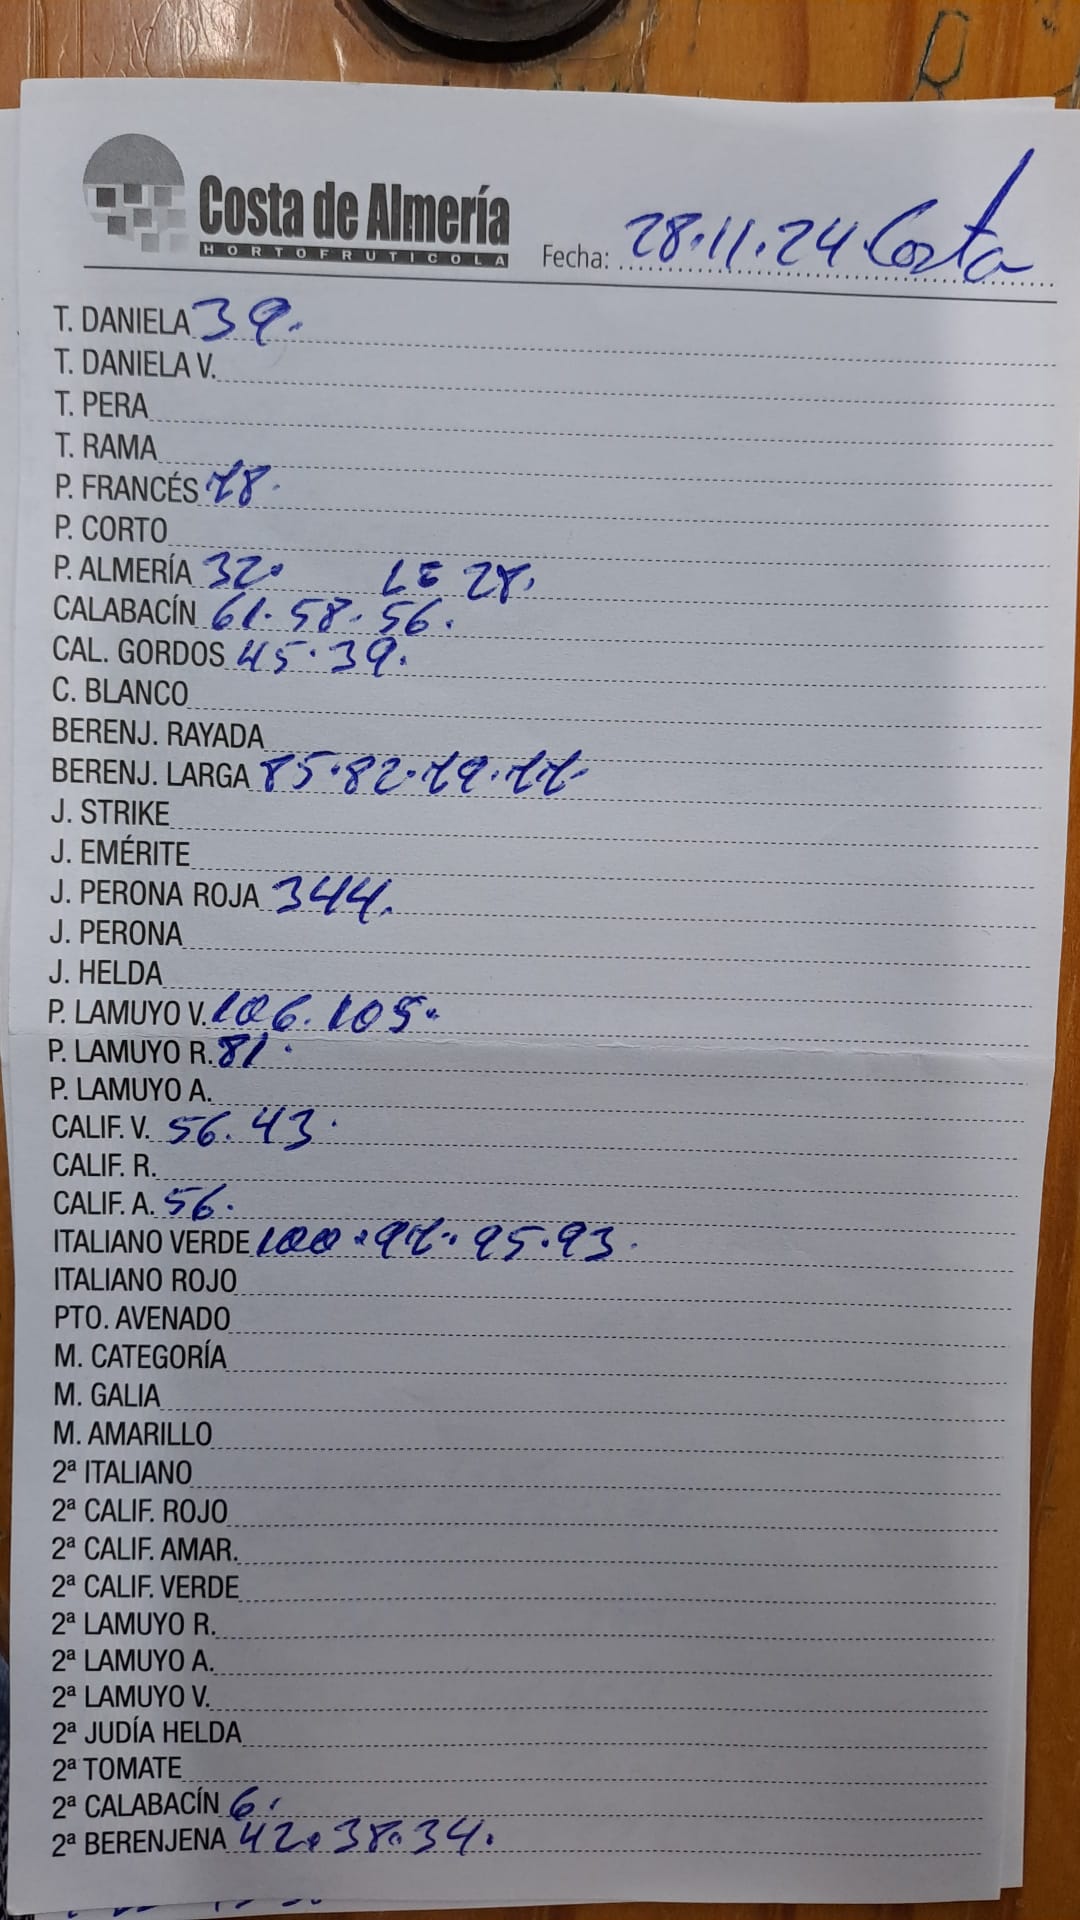 Costa de Almería
HORTOFRUTICOLA
Fecha: 28.11.24 Costa
T. DANIELA 39.
T. DANIELA V.
T. PERA
T. RAMA
P. FRANCÉS 78.
P. CORTO
P. ALMERÍA 32. LE 28.
CALABACÍN 61. 58. 56.
CAL. GORDOS 45. 39.
C. BLANCO
BERENJ. RAYADA
BERENJ. LARGA 85. 82. 79. 77.
J. STRIKE
J. EMÉRITE
J. PERONA ROJA 344.
J. PERONA
J. HELDA
P. LAMUYO V. 106. 105.
P. LAMUYO R. 81.
P. LAMUYO A.
CALIF. V. 56. 43.
CALIF. R.
CALIF. A. 56.
ITALIANO VERDE 100. 97. 95. 93.
ITALIANO ROJO
PTO. AVENADO
M. CATEGORÍA
M. GALIA
M. AMARILLO
2ª ITALIANO
2ª CALIF. ROJO
2ª CALIF. AMAR.
2ª CALIF. VERDE
2ª LAMUYO R.
2ª LAMUYO A.
2ª LAMUYO V.
2ª JUDÍA HELDA
2ª TOMATE
2ª CALABACÍN 6.
2ª BERENJENA 42. 38. 34.